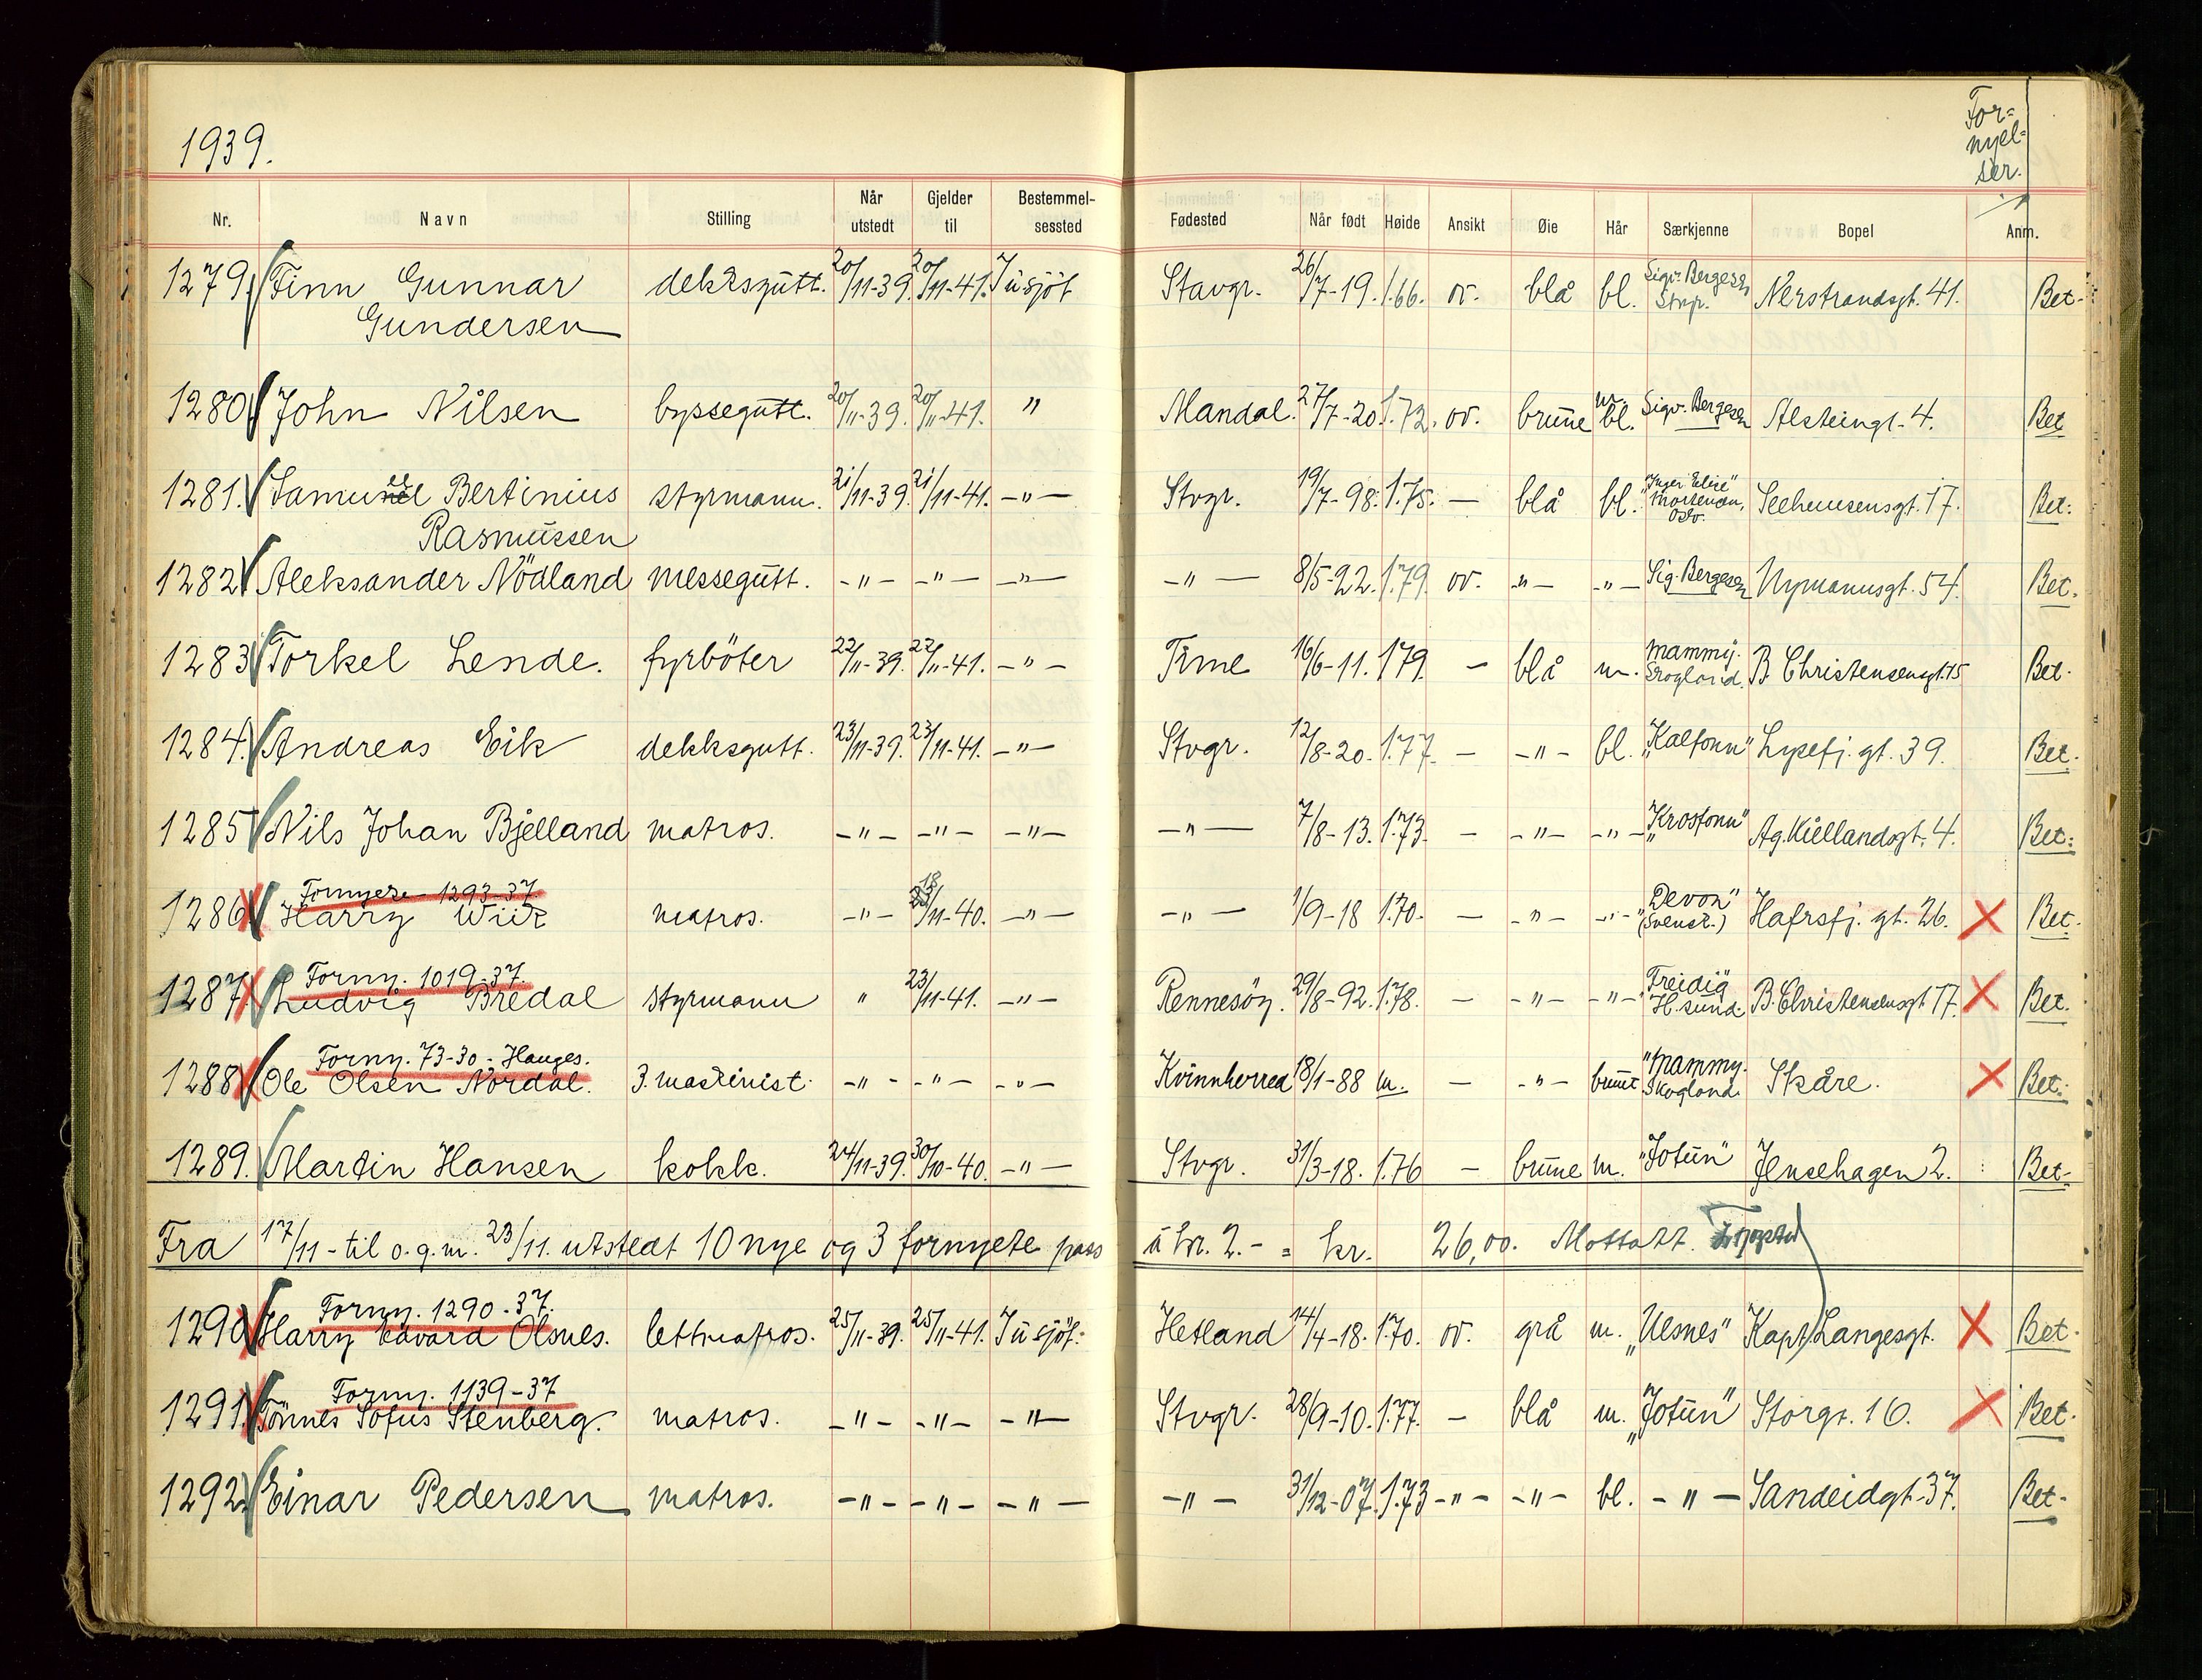 1939.
For-
nyel-
ser.
Nr. Navn Stilling Når utstedt Gjelder til Bestemmel-sessted Fødested Når født Høide Ansikt Øie Hår Særkjenne Bopel Anm.
1279. Finn Gunnar dekksgutt. 20/11-39. 20/11-41. Tilsjös Stavgr. 26/7-19. 1.66. ov. blå bl. Sigv. Bergesen Stvgr. Nerstrandsgt. 41. Bet.
Gundersen
1280 John Nilsen byssegutt. 20/11-39. 20/11-41. " Mandal. 27/7-20. 1.72. ov. brune m.bl. Sigv. Bergesen Alsteingt. 4. Bet
1281. Samuel Bertinius styrmann. 21/11-39. 21/11-41. -"- Stvgr. 19/7-98. 1.75. - blå bl. "Inger Elise" Mortensen, Oslo. Seehusensgt. 17. Bet.
Rasmussen
1282 Aleksander Nödland messegutt. -"- -"- -"- -"- 8/5-22. 1.79. ov. -"- -"- Sig. Bergesen Nymannsgt. 54. Bet.
1283 Torkel Lende. fyrböter 22/11-39. 22/11-41. -"- Time 16/6-11. 1.79. - blå m. Mammy. Skogland. B. Christensensgt. 15 Bet.
1284. Andreas Eik dekksgutt. 23/11-39. 23/11-41. -"- Stvgr. 12/8-20. 1.77. - -"- bl. "Kalfonn" Lysefj. gt. 39. Bet.
1285 Nils Johan Bjelland matros. -"- -"- -"- -"- 7/8-13. 1.73. - -"- -"- "Krosfonn" Ag. Kiellandsgt. 4. Bet.
Fornyete 1293-37.
1286 Harry Wiik matros. -"- 18/11-40. -"- -"- 1/9-18 1.70. - -"- -"- "Devon" (Svensk.) Hafrsfj. gt. 26. X Bet.
Forny. 1019-37.
1287 Ludvig Bredal styrmann " 23/11-41. -"- Rennesöy. 29/8-92. 1.78. - -"- -"- "Freidig" H.sund. B. Christensensgt. 17. X Bet.
Forny. 73-30 - Hauges.
1288 Ole Olsen Nordal. 3. maskinist. -"- -"- -"- Kvinnherred 18/1-88 m. - -"- brunt "Mammy. Skogland. Skåre. X Bet.
1289. Martin Hansen kokk. 24/11-39. 30/10-40. -"- Stvgr. 31/3-18. 1.76 - brune m. "Jotun" Jensehagen 2. Bet.
Fra 17/11 - til o.g.m. 23/11. utstedt 10 nye og 3 fornyete pass à kr. 2.- = kr. 26,00. Mottatt.
Forny. 1290-37.
1290 Harry Edvard Olsnes. lettmatros. 25/11-39. 25/11-41. Tilsjös. Hetland 14/4-18. 1.70. ov. grå m. "Ulsnes" Kapt. Langesgt. X Bet.
Forny. 1139-37
1291. Tönnes Sofus Stenberg. matros. -"- -"- -"- Stvgr. 28/9-10. 1.77. - blå m. "Jotun" Storgt. 16. X Bet.
1292. Einar Pedersen matros. -"- -"- -"- -"- 31/12-07. 1.73 -"- -"- bl. -"- Sandeidgt. 37. Bet.